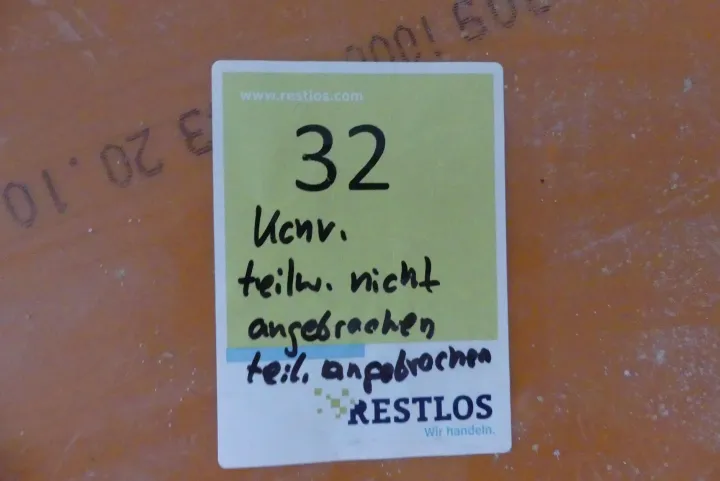 www.restlos.com
32
teilw. nicht
angebrochen
teil. angebrochen
RESTLOS
Wir handeln.